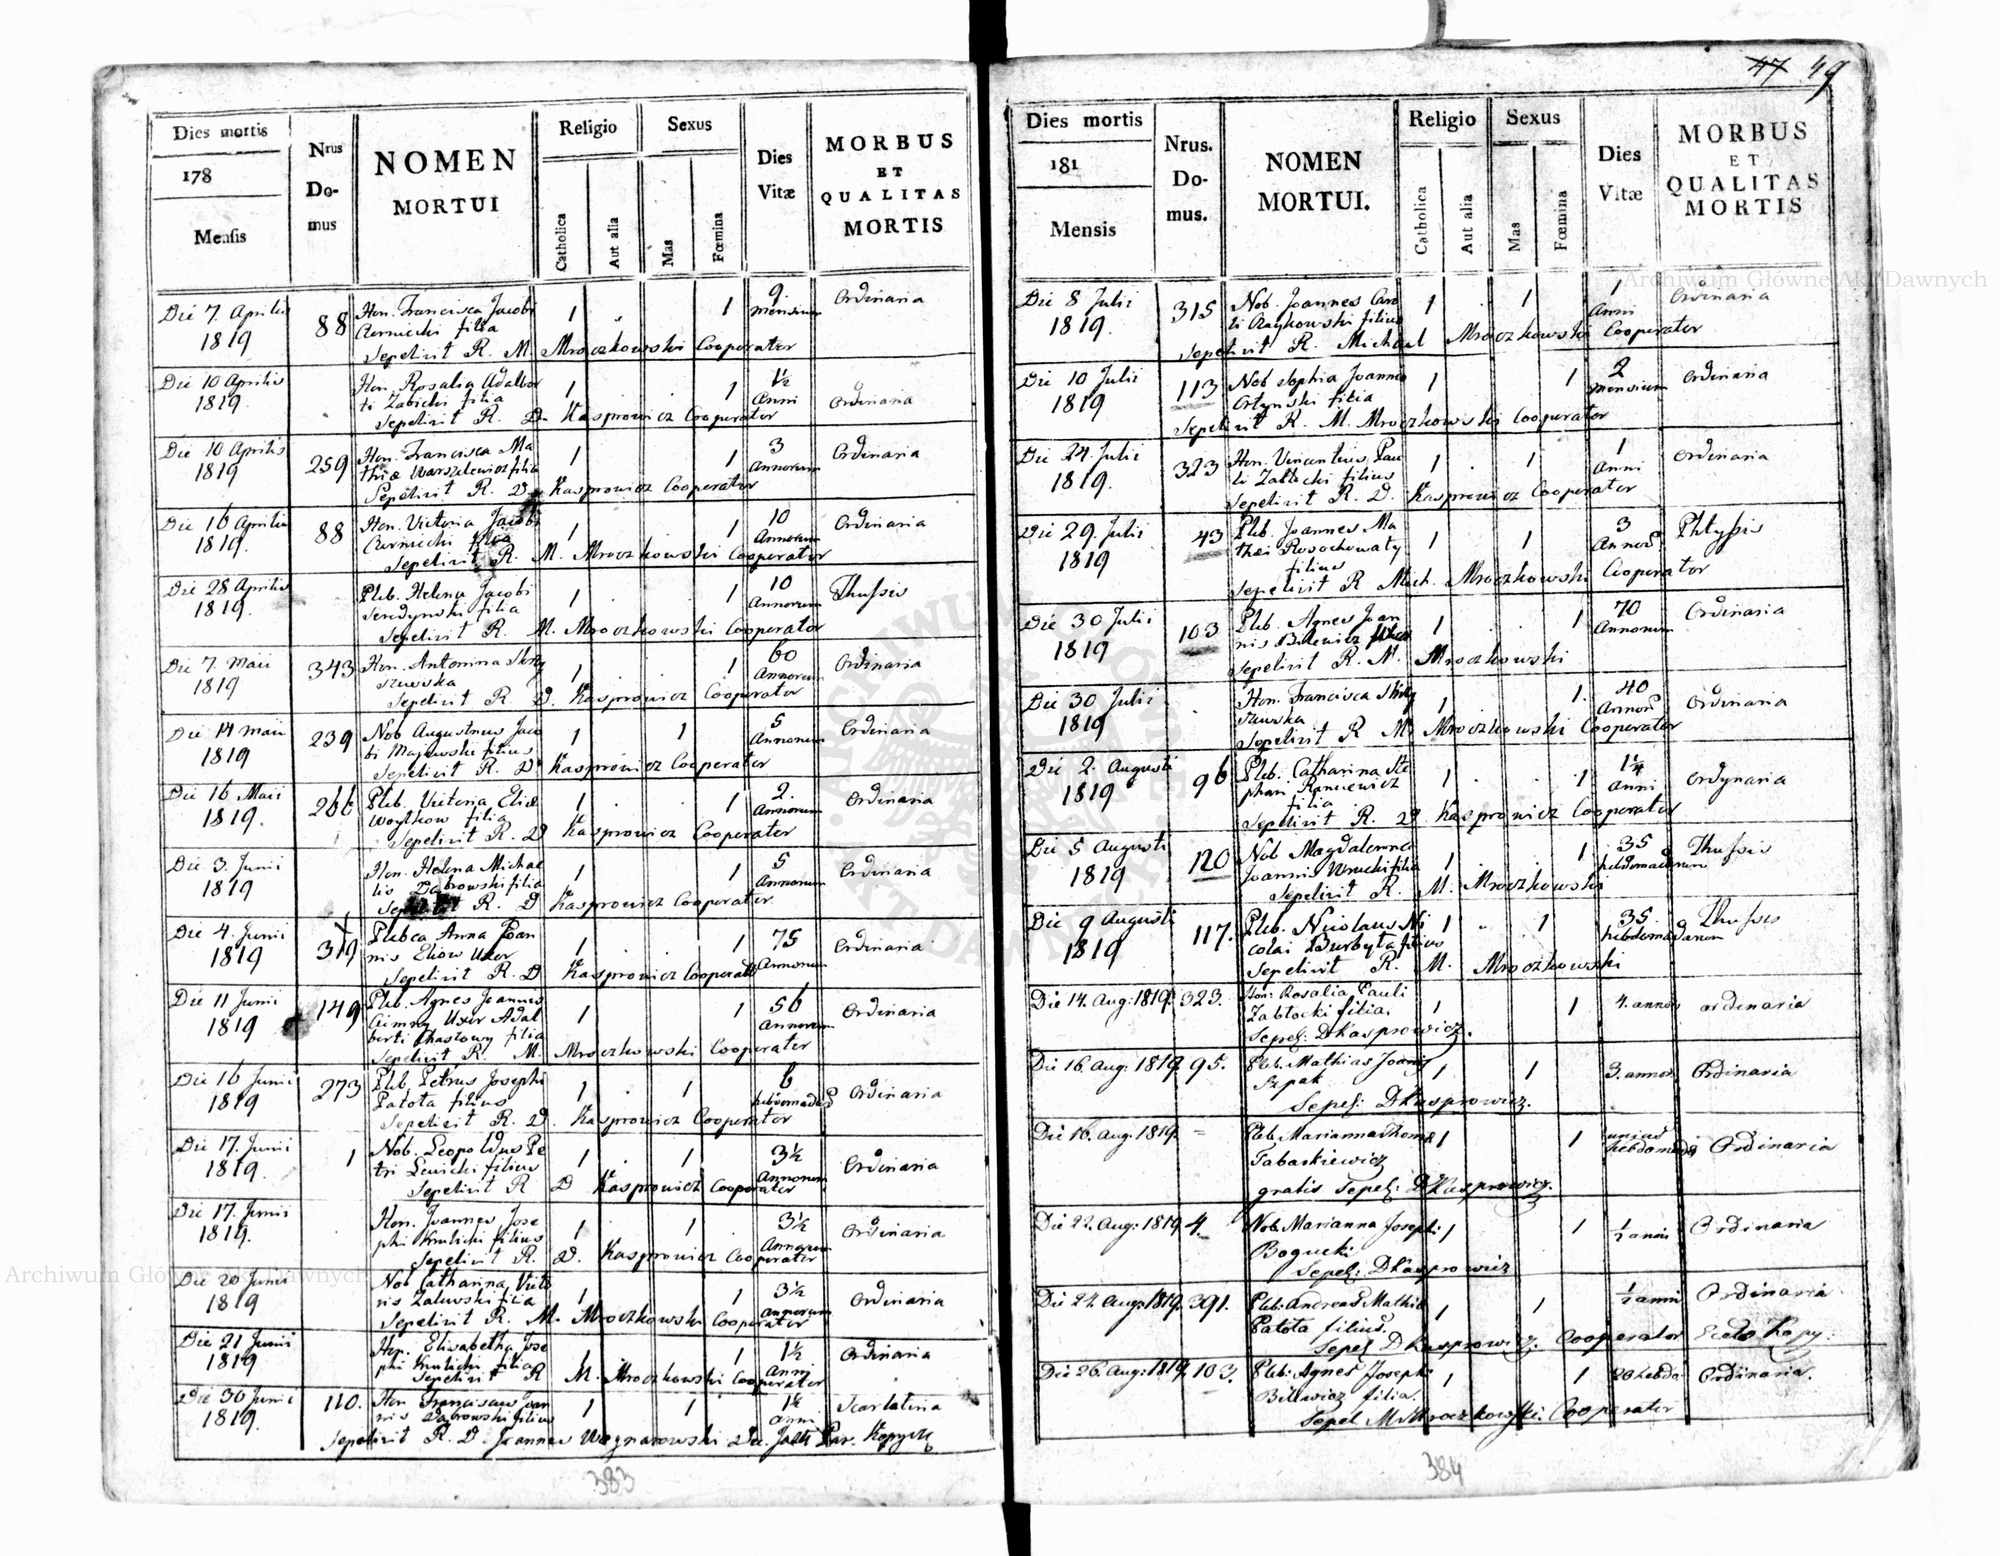 47 49
Dies mortis
178
Mensis
Nrus
Do-
mus
NOMEN
MORTUI
Religio
Catholica
Aut alia
Sexus
Mas
Fœmina
Dies
Vitæ
MORBUS
ET
QUALITAS
MORTIS
Die 7 Aprilis 88 Hon. Francisca Jacobi 1 1 9 Ordinaria
1819 Czernicki filia mensium
Sepelivit R. M. Mroczkowski Cooperator
Die 10 Aprilis Hon. Rosalia Adalber 1 1 1½ Ordinaria
1819. ti Zabicki filia Anni
Sepelivit R. D. Kasprowicz Cooperator
Die 10 Aprilis 259 Hon. Francisca Ma 1 1 3 Ordinaria
1819 thiæ Warszelewicz filia Annorum
Sepelivit R. D. Kasprowicz Cooperator
Die 16 Aprilis 88 Hon. Victoria Jacobi 1 1 10 Ordinaria
1819. Czernicki filia Annorum
Sepelivit R. M. Mroczkowski Cooperator
Die 28 Aprilis Pleb. Helena Jacobi 1 1 10 Thussis
1819. Sendynski filia Annorum
Sepelivit R. M. Mroczkowski Cooperator
Die 7. Maii 343 Hon. Antonina Skrzy 1 1 60 Ordinaria
1819 szewska Annorum
Sepelivit R. D. Kasprowicz Cooperator
Die 14 Maii 239 Nob Augustinus Jaco 1 1 5 Ordinaria
1819 bi Majewski filius Annorum
Sepelivit R. D Kasprowicz Cooperator
Die 16 Maii 266 Pleb. Victoria Eliæ 1 1 2. Ordinaria
1819. Woytkow filia Annorum
Sepelivit R. D Kasprowicz Cooperator
Die 3. Junii Hon. Helena Michae 1 1 5 Ordinaria
1819 lis Dąbrowski filia Annorum
Sepelivit R. D Kasprowicz Cooperator
Die 4. Junii 319 Plebea Anna Joan 1 1 75 Ordinaria
1819 nis Eliow Uxor Annorum
Sepelivit R. D Kasprowicz Cooperator
Die 11 Junii 149 Pleb. Agnes Joannis 1 1 56 Ordinaria
1819 Uxor Adal Annorum
berti Chastowy filia
Sepelivit R. M. Mroczkowski Cooperator
Die 16 Junii 273 Pleb Petrus Josephi 1 1 6 Ordinaria
1819 Patota filius hebdomadum
Sepelivit R. D. Kasprowicz Cooperator
Die 17. Junii 1 Nob. Leopoldus Pe 1 1 3½ Ordinaria
1819. tri Lewicki filius Annorum
Sepelivit R D Kasprowicz Cooperator
Die 17. Junii Hon. Joannes Jose 1 1 3½ Ordinaria
1819. phi Krulicki filius Annorum
Sepelivit R. D. Kasprowicz Cooperator
Die 20 Junii Nob Catharina Victo 1 1 3½ Ordinaria
1819 ris Zalewski filia Annorum
Sepelivit R. M. Mroczkowski Cooperator
Die 21 Junii Hon. Elisabetha Jose 1 1 1½ Ordinaria
1819 phi Krulicki filia Anni
Sepelivit R M. Mroczkowski Cooperator
Die 30 Junii 110. Hon Franciscus Joan 1 1 1½ Scarlatina
1819. nis Dąbrowski filius Anni
Sepelivit R. D. Joannes
383
Dies mortis
181
Mensis
Nrus.
Do-
mus.
NOMEN
MORTUI.
Religio
Catholica
Aut alia
Sexus
Mas
Fœmina
Dies
Vitæ
MORBUS
ET
QUALITAS
MORTIS
Die 8 Julii 315 Nob. Joannes Caro 1 1 1 Ordinaria
1819. li filius Anni
Sepelivit R. Michael Mroczkowski Cooperator
Die 10 Julii 113 Nob Sophia Joannes 1 1 2 Ordinaria
1819 Ortynski filia mensium
Sepelivit R. M. Mroczkowski Cooperator
Die 24 Julii 323 Hon. Vincentius Pau 1 1 1 Ordinaria
1819. li Zabłocki filius Anni
Sepelivit R. D. Kasprowicz Cooperator
Die 29. Julii 43 Pleb. Joannes Ma 1 1 3 Phtyssis
1819 thæi Rosochowaty Annor
filius
Sepelivit R Mich. Mroczkowski Cooperator
Die 30 Julii 103 Pleb. Agnes Joan 1 1 70 Ordinaria
1819 nis Bilewicz Annorum
Sepelivit R. M. Mroczkowski
Die 30 Julii Hon. Francisca Skrzy 1 1 40 Ordinaria
1819 szewska Annor
Sepelivit R M. Mroczkowski Cooperator
Die 2. Augusti 96 Pleb. Catharina Ste 1 1 1¼ Ordynaria
1819 phani anni
filia
Sepelivit R. D Kasprowicz Cooperator
Die 5 Augusti 120 Nob Magdalenna 1 1 35 Thussis
1819 Joannis filia hebdomadarum
Sepelivit R. M. Mroczkowski
Die 9 Augusti 117. Pleb. Nicolaus Ni 1 1 35 Thussis
1819 colai Burbyta filius hebdomadarum
Sepelivit R. M. Mroczkowski
Die 14. Aug: 1819. 323. Hon: Rosalia Pauli 1 1 4. annor ordinaria
Zabłocki filia.
Sepel: D Kasprowicz.
Die 16. Aug: 1819. 95. Pleb. Mathias Joann 1 1 3. annor Ordinaria
Szpak
Sepel: D Kasprowicz.
Die 16. Aug: 1819. = Pleb. Marianna Thoma 1 1 unius Ordinaria
Tabaskiewicz hebdomada
gratis Sepel: D Kasprowicz.
Die 22. Aug: 1819 4. Nob. Marianna Josephi 1 1 ½ anni Ordinaria
Bogucki
Sepel: D Kasprowicz
Die 24. Aug: 1819. 391. Pleb: Andreas Mathia 1 1 ½ anni Ordinaria
Patota filius.
Sepel D Kasprowicz. Cooperator
Die 26. Aug: 1819. 103. Pleb: Agnes Joseph 1 1 20 hebda Ordinaria.
Bilewicz filia.
Sepel M Mroczkowski Cooperator
384
Archiwum Główne Akt Dawnych
Archiwum Główne Akt Dawnych
ARCHIWUM GŁÓWNE AKT DAWNYCH